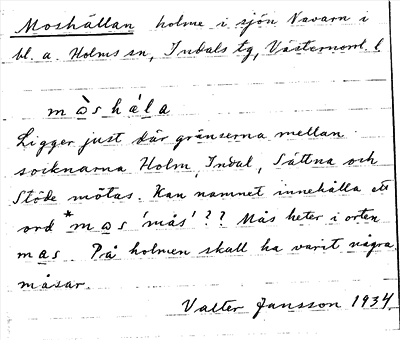 Moshällan holme i sjön Navarn i
bl. a. Holms sn, Indals tg, Västernorrl. l.
m ɷ̀ s h á l a
Ligger just där gränserna mellan
socknarna Holm, Indal, Sättna och
Stöde mötas. Kan namnet innehålla ett
ord *mɷs 'mås'?? Mås heter i orten
mas. På holmen skall ha varit några
måsar.
Valter Jansson 1934